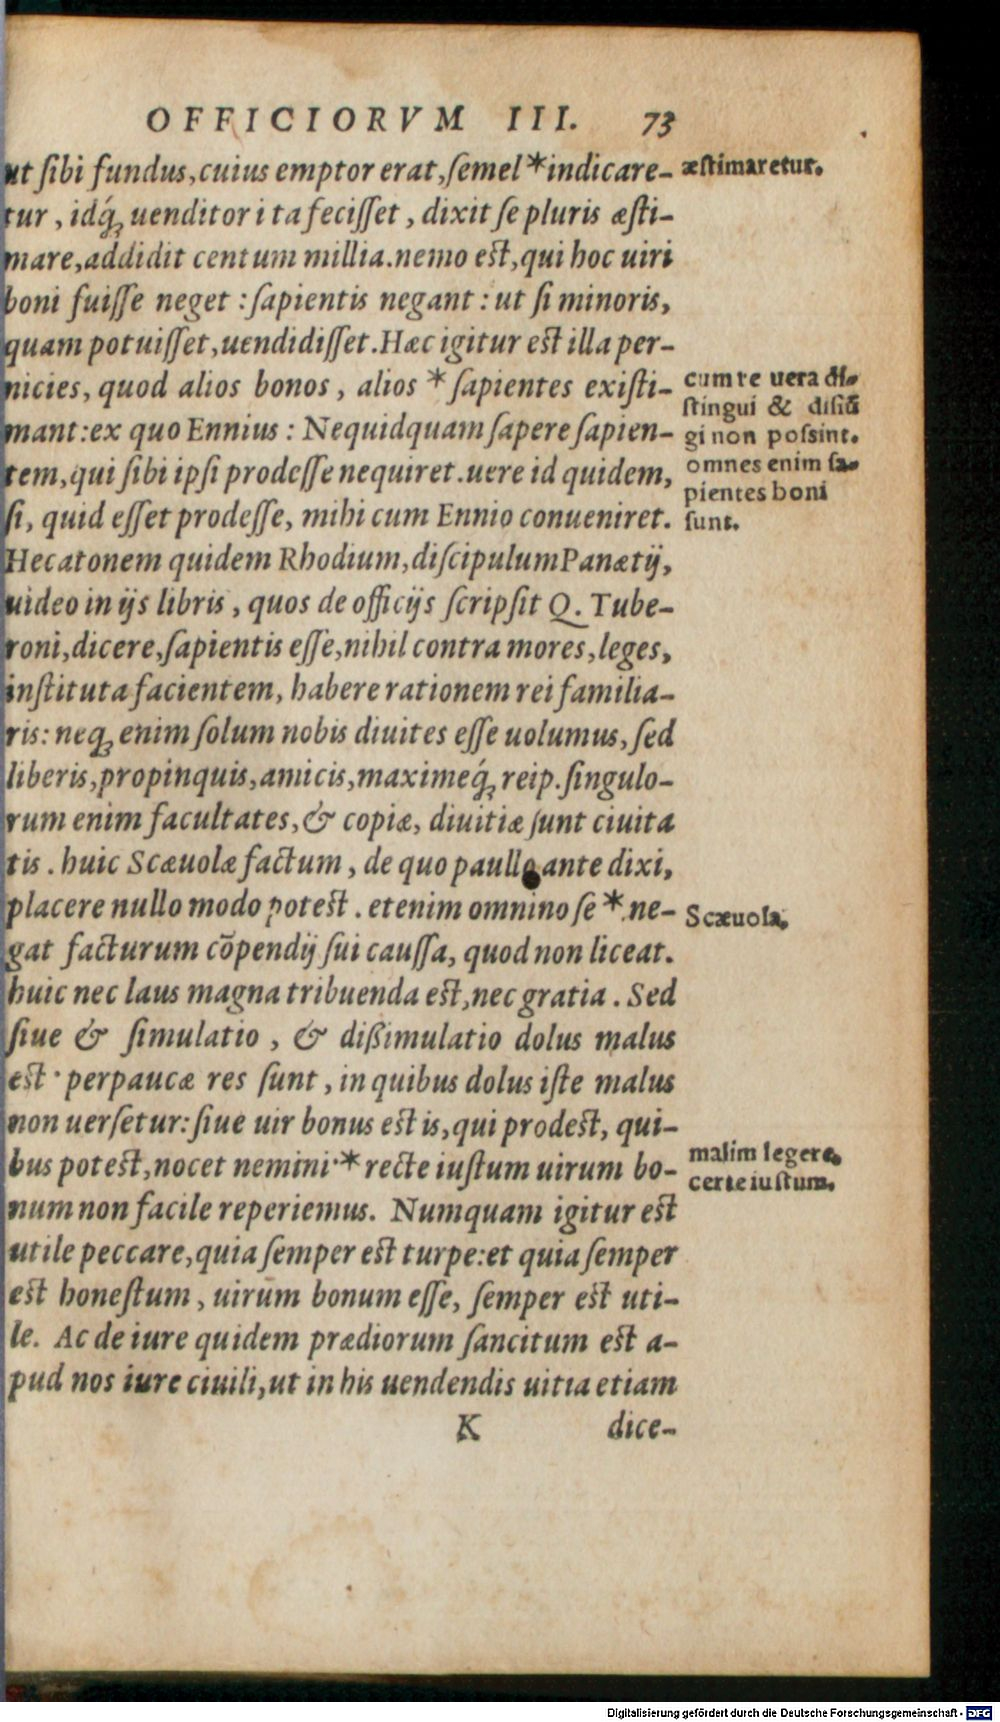 OFFICIORVM III. 73
ut ſibi fundus, cuius emptor erat, ſemel * indicare-
tur, idq́; uenditor ita feciſſet, dixit ſe pluris æſti-
mare, addidit centum millia. nemo est, qui hoc uiri
boni fuiſſe neget: ſapientis negant: ut ſi minoris,
quam potuiſſet, uendidiſſet. Hæc igitur est illa per-
nicies, quod alios bonos, alios * ſapientes exiſti-
mant: ex quo Ennius: Nequidquam ſapere ſapien-
tem, qui ſibi ipſi prodeſſe nequiret. uere id quidem,
ſi, quid eſſet prodeſſe, mihi cum Ennio conueniret.
Hecatonem quidem Rhodium, diſcipulum Panætij,
uideo in ijs libris, quos de officijs ſcripſit Q. Tube-
roni, dicere, ſapientis eſſe, nihil contra mores, leges,
inſtituta facientem, habere rationem rei familia-
ris: neq; enim ſolum nobis diuites eſſe uolumus, ſed
liberis, propinquis, amicis, maximeq́; reip. ſingulo-
rum enim facultates, & copiæ, diuitiæ ſunt ciuita
tis. huic Scæuolæ factum, de quo paullo ante dixi,
placere nullo modo potest. etenim omnino ſe * ne-
gat facturum cōpendij ſui cauſſa, quod non liceat.
huic nec laus magna tribuenda est, nec gratia. Sed
ſiue & ſimulatio, & dißimulatio dolus malus
est· perpaucæ res ſunt, in quibus dolus iſte malus
non uerſetur: ſiue uir bonus est is, qui prodest, qui-
bus potest, nocet nemini·* recte iuſtum uirum bo-
num non facile reperiemus. Numquam igitur est
utile peccare, quia ſemper est turpe: et quia ſemper
est honeſtum, uirum bonum eſſe, ſemper est uti-
le. Ac de iure quidem prædiorum ſancitum est a-
pud nos iure ciuili, ut in his uendendis uitia etiam
K dice-
æſtimaretur.
cum re uera di-
ſtingui & diſiū
gi non poſsint.
omnes enim ſa-
pientes boni
ſunt.
Scæuola.
malim legere,
certe iuſtum.
Digitalisierung gefördert durch die Deutsche Forschungsgemeinschaft - DFG